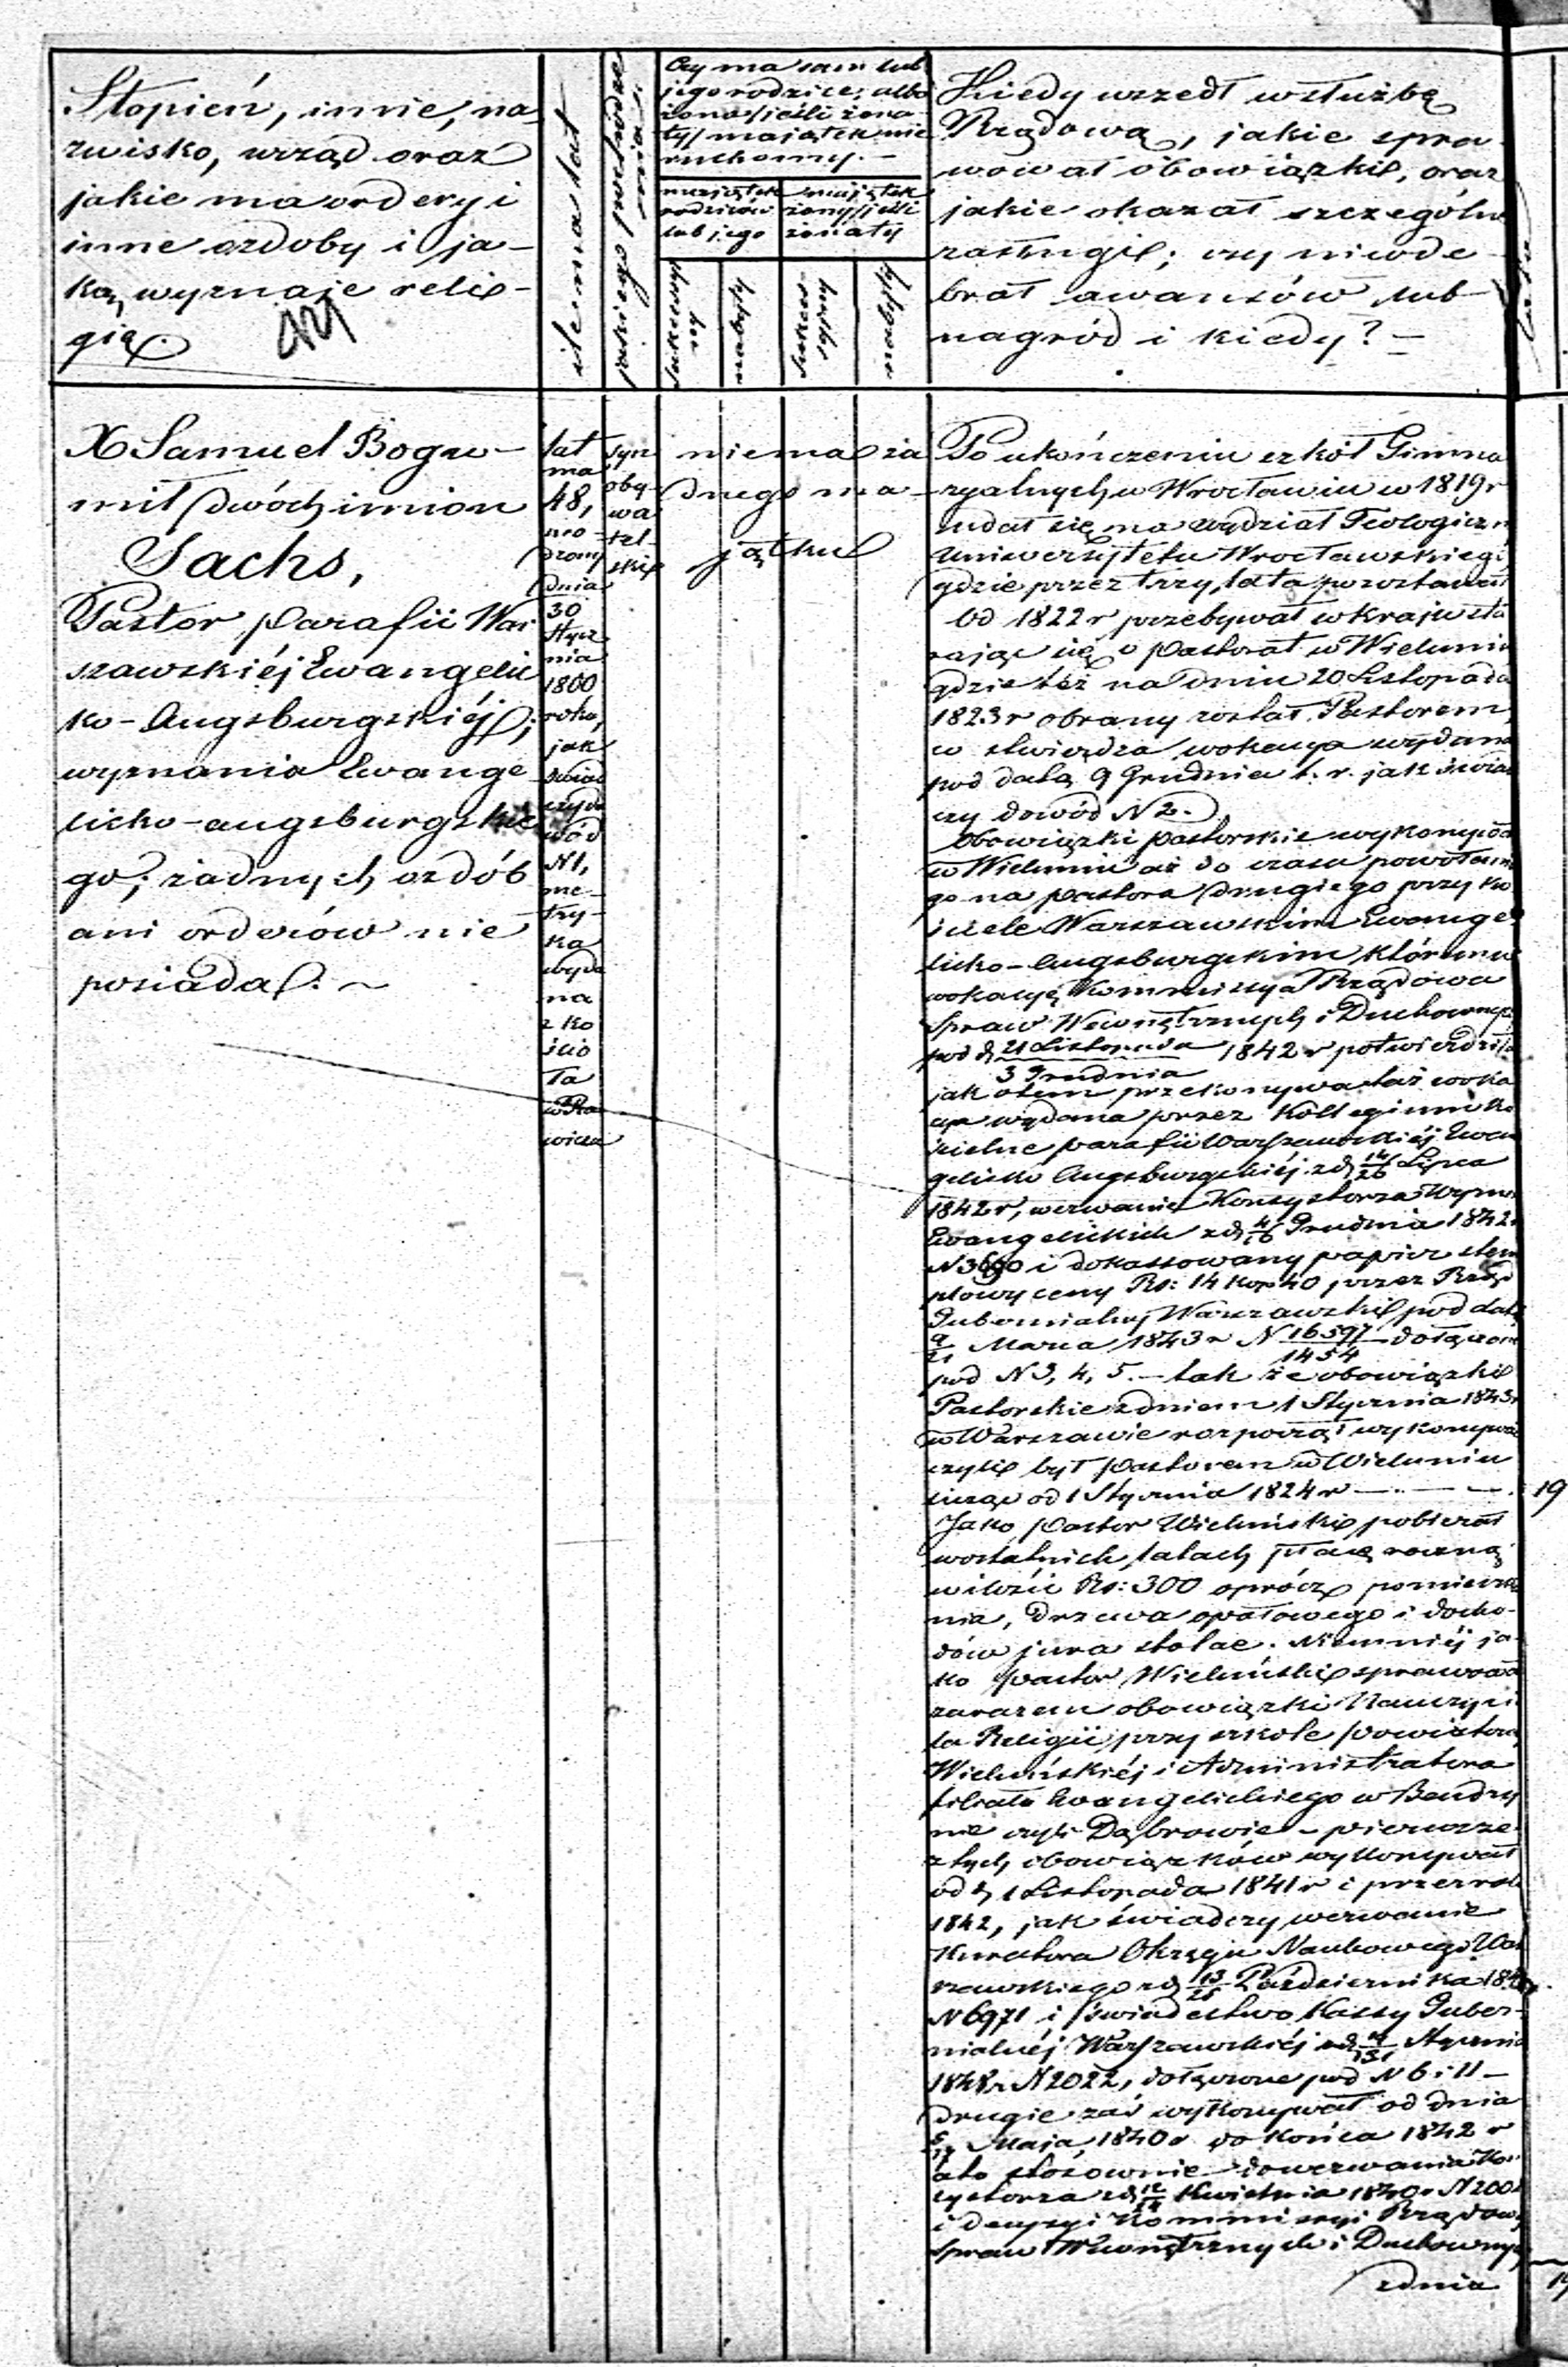 Stopień, imie, na-
zwisko, urząd oraz
jakie ma ordery i
inne ozdoby i ja-
ką wyznaje reli-
gię.
ile ma lat
jakiego pochodze
nia.
Czy ma sam lub
jego rodzice, albo
żona /jeśli żona-
ty/ majątek nie
ruchomy. —
majątek
rodziców
lub jego
majątek
żony /jeśli
żonaty
Kiedy wszedł w służbę
Rządową, jakie spra-
wował obowiązki, oraz
jakie okazał szczególne
zasługi; czy nieode-
brał awansów lub
nagród i kiedy? —
X Samuel Bogu-
mił /dwóch imion
Sachs,
Pastor Parafii War
szawskiéj Ewangelic
ko-Augsburgskiéj;
wyznania Ewange
licko-augsburgskie
go; żadnych ozdób
ani orderów nie
posiada. ~
lat
ma
48,
uro-
dzony
dnia
30
Stycz
nia
1800
roku,
jak
świad
czy do
wód
N1,
me-
try-
ka
wyda
na
z ko
ścio
ła
syn
oby-
wa
tel-
ski
niema ża
dnego ma-
jątku
Po ukończeniu szkół Gimna
zyalnych w Wrocławiu w 1819 r
udał się na wydział Teologiczn
Uniwersytetu Wrocławskiego
gdzie przez trzy lata pozostawał
Od 1822 r przebywał w Kraju sta
rając się o pastorat w Wieluniu
gdzie też na dniu 20 Listopada
1823 r obrany został Pastorem,
co stwierdza wokacya wydana
pod datą 9 Grudnia t. r. jak świad
czy dowód N 2.
Obowiązki pastorskie wykonywał
w Wieluniu aż do czasu powołania
go na pastora drugiego przy ko
ściele Warszawskim Ewange-
licko-Augsburgskim któremu
wokacyę Kommissya Rządowa
Spraw Wewnętrznych i Duchownych
pod d. 21 Listopada / 3 Grudnia 1842 r potwierdziła
jak o tem przekonywa też woka
cya wydana przez Kollegium Ko
ścielne parafii Warszawskiéj Ewan
gelicko Augsburgskiéj z d. 14/26 Lipca
1842 r, wezwanie Konsystorza Wyznań
Ewangelickich z d. 4/16 Grudnia 1842 r
N 3690 i dokassowany papier stem
plowy ceny Rs: 14 kop 40 przez Rząd
Gubernialny Warszawski pod datą
9/21 Marca 1843 r N 16597/1454 dołączone
pod N 3, 4, 5. — tak że obowiązki
Pastorskie z dniem 1 Stycznia 1843 r
w Warszawie rozpoczął wykonywać
czyli był pastorem w Wieluniu
licząc od 1 Stycznia 1824 r — — — 19
Jako Pastor Wieluński pobierał
w ostatnich latach płacę roczną
w ilości Rs: 300 oprócz pomieszcze
nia, drzewa opałowego i docho-
dów jura stolae. Niemniéj ja-
ko pastor Wieluński sprawował
zarazem obowiązki Nauczyci
la Religii przy szkole powiatowéj
Wieluńskiéj i Administratora
filiału Ewangelickiego w
czyli Dąbrowie — pierwsze
z tych obowiązków wykonywał
od d. 1 Listopada 1841 r i przez rok
1842, jak świadczy wezwanie
Kuratora Okręgu Naukowego War
szawskiego z d. 13/25 Października
N 6971 i świadectwo Kassy Guber-
nialnéj Warszawskiéj Stycznia
1848 r N 2022, dołączone pod N 6 i 11 —
drugie zaś wykonywał od dnia
Maja 1840 r do końca 1842 r
a to stosownie do wezwania Kon
systorza z d. 12/24 Kwietnia 1840 r
i decyzyi Kommissyi Rządowéj
Spraw Wewnętrznych i Duchownych
z dnia